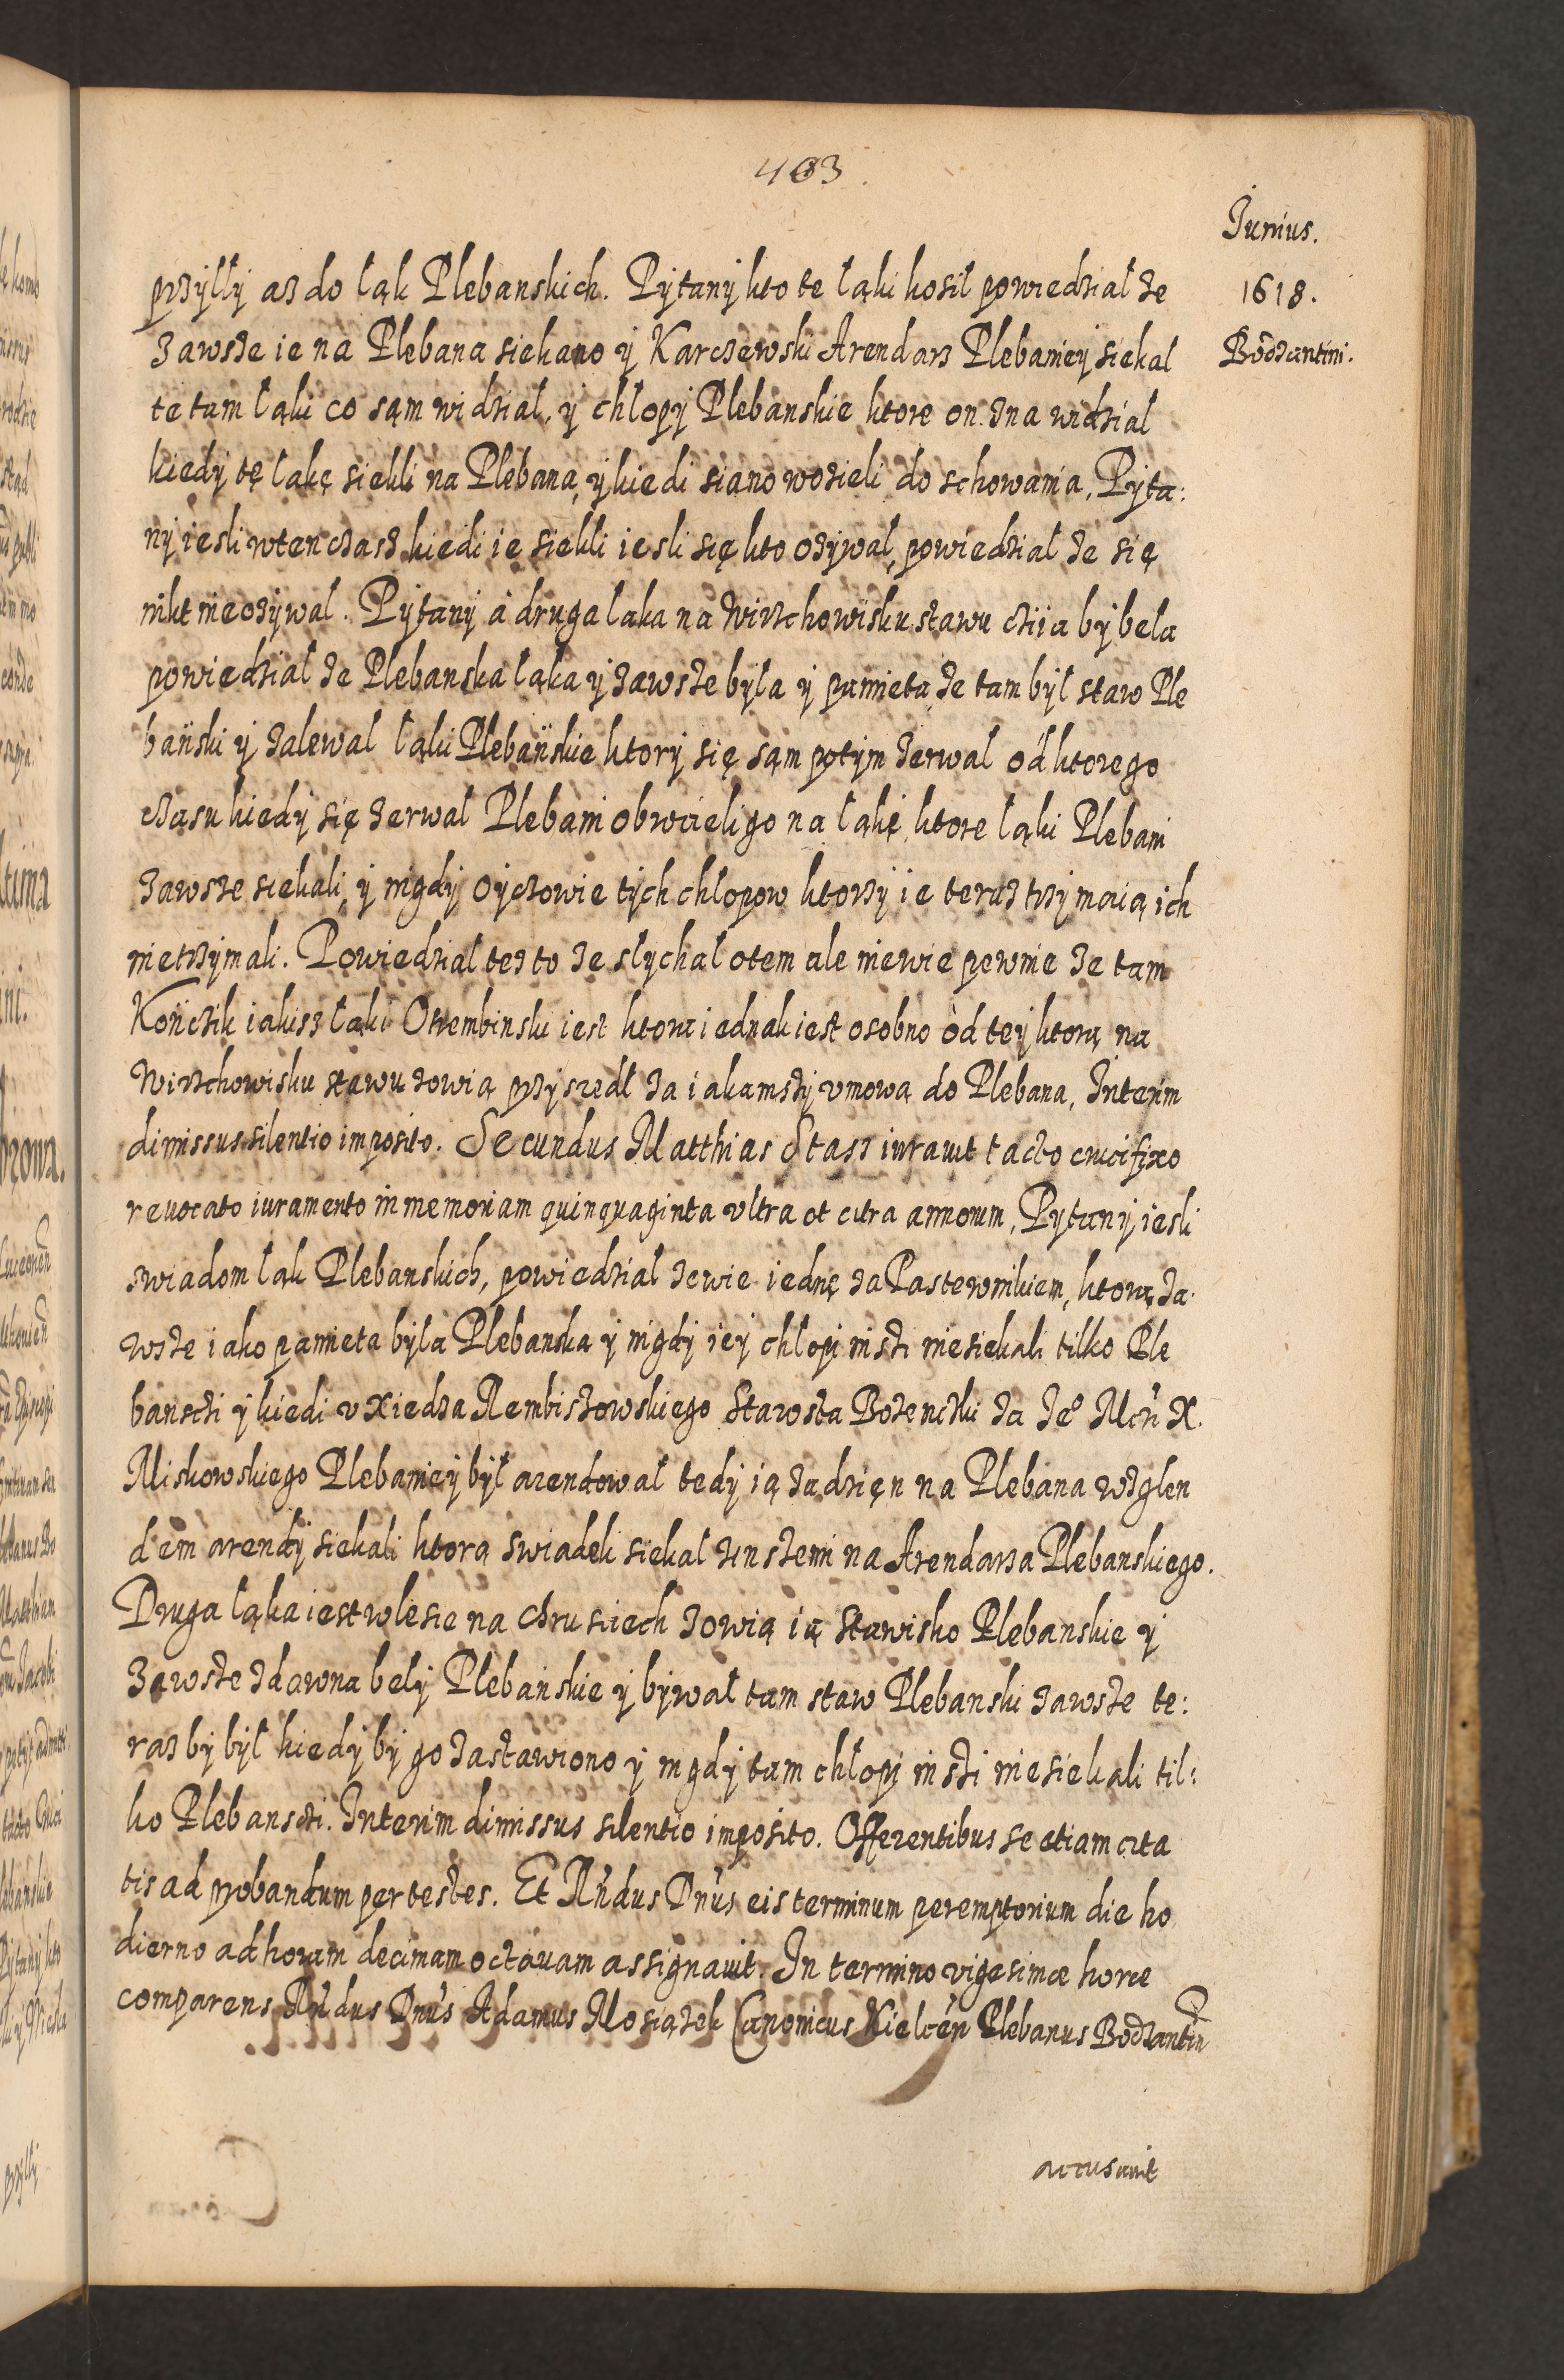 403
Junius.
1618.
Bodzantini.
przylly az do ląk Plebanskich. Pytany kto te ląki kosil powiedzial ze
zawsze ie na Plebana siekano y Karczewski Arendarz Plebaniey siekal
te tam ląki co sąm widzial, y chlopy Plebanskie ktore on zna widzial
kiedy tę lakę siekli na Plebana, y kiedi siano wozieli do schowania, Pyta:
ny iesli wten czasz kiedi ie siekli iesli się kto ozywal, powiedzial ze się
nikt nieozywal. Pytany a druga laka na Wirzchowisku stawu cziia by bela
powiedzial ze Plebanska ląka y zawsze byla y pamieta ze tam byl staw Ple
bański y zalewal ląki Plebańskie ktory się sąm potym zerwal od ktorego
czasu kiedy się zerwal Plebani obrocieli go na ląkę, ktore ląki Plebani
zawsze siekali, y nigdy oyczowie tych chlopow ktorzy ie teraz trzymaią ich
nietrzymali. Powiedzial tez to ze slychal otem ale niewie pewnie ze tam
Kończik iakisz ląki Otrembinski iest ktora iednak iest osobno od tey ktorą na
Wirzchowisku stawu zowią przyszedl za iakamszy vmową do Plebana, Interim
dimissus silentio imposito. Secundus Matthias Stasz iuravit tacto crucifixo
revocato iuramento in memoriam quinquaginta vltra et citra annorum, Pytany iesli
swiadom ląk Plebanskich, powiedzial zewie iednę za Pastewnikiem, ktorą za
wsze iako pamieta byla Plebanska y nigdy iey chlopi inszi niesiekali tilko Ple
bansczi y kiedi v Xiedza Rembiszowskiego Starosta Bozenczki za Je° Mcz X.
Miskowskiego Plebaniey byl arendowal tedy ią zadzięn na Plebana wzglen
dem arendy siekali ktorą swiadek siekal z inszemi na Arendarza Plebanskiego.
Druga ląka iest wlesie na chrusciech zowią ią Stawisko Plebanskie y
zawsze zdawna bely Plebańskie y bywal tam staw Plebanski zawsze te:
raz by byl kiedy by go zastawiono y nigdy tam chlopi inszi niesiekali til:
ko Plebanscti. Interim dimissus silentio imposito. Offerentibus se etiam cita
tis ad probandum per testes. Et Rndus Dnus eis terminum peremptorium die ho
dierno ad horam decimam octavam assignavit. In termino vigesimæ horæ
comparens Rndus Dnus Adamus Mosiązek Canonicus Kielcen Plebanus Bodzantin
accusavit